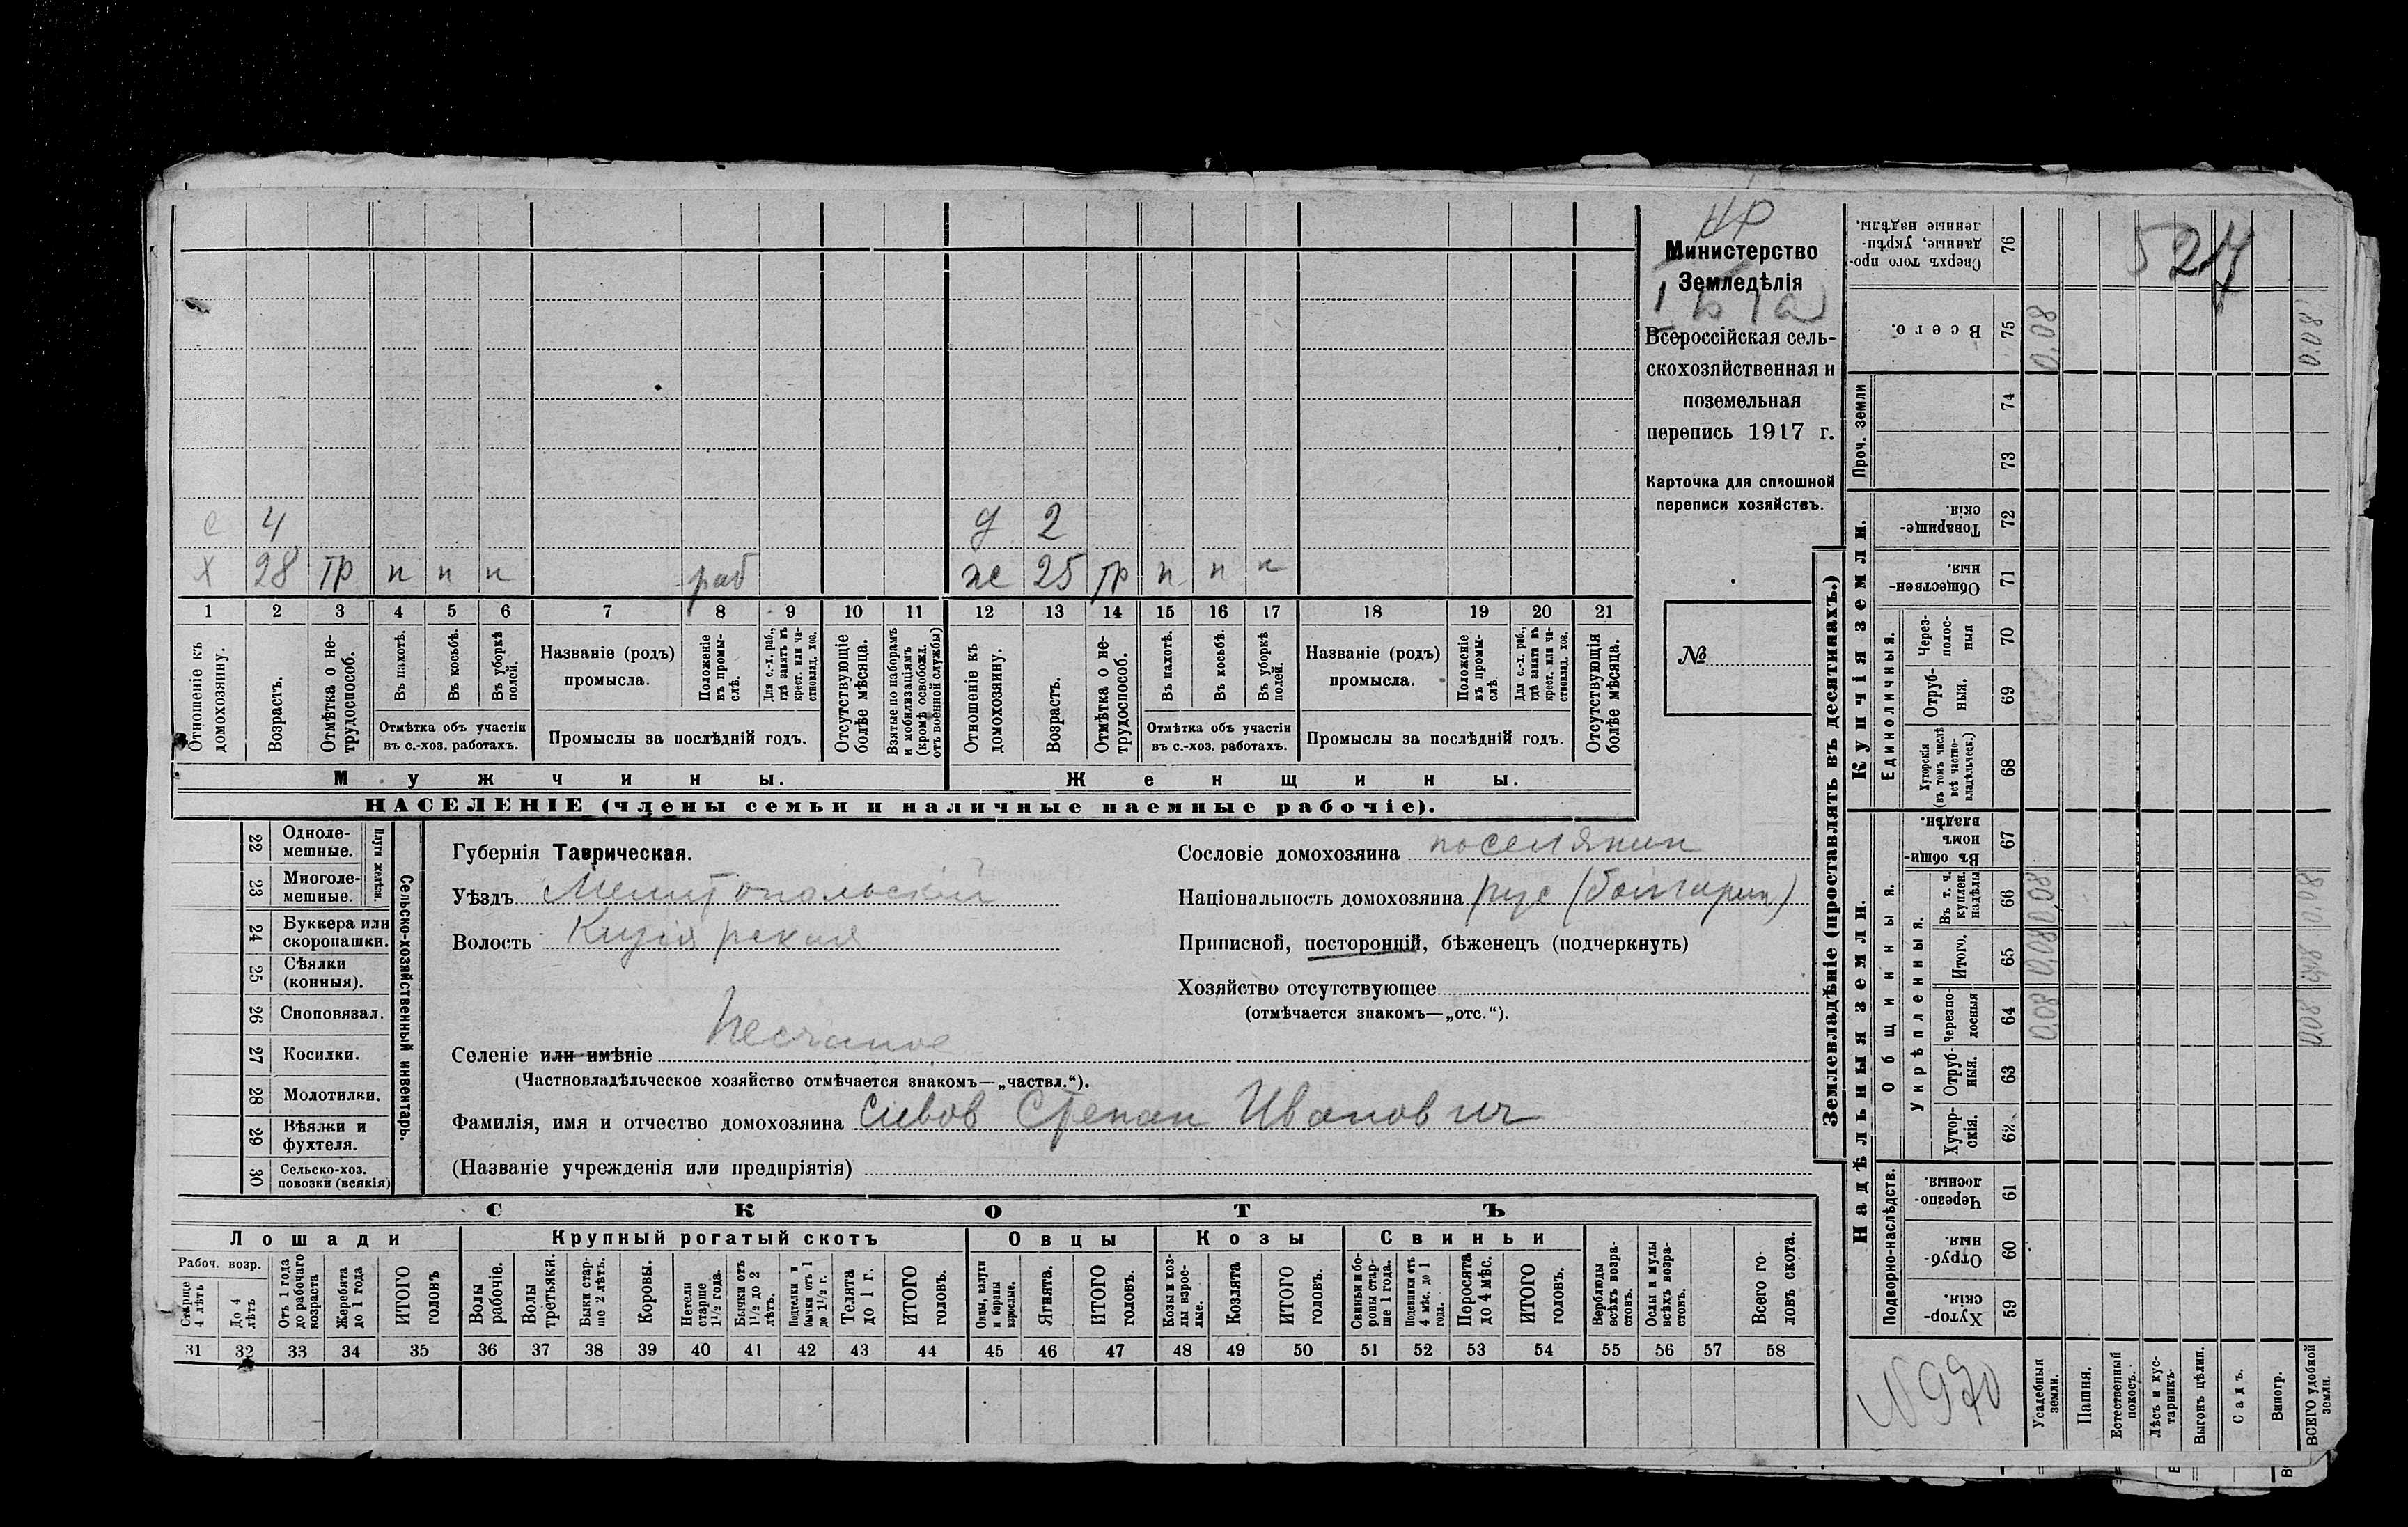 НР
Министерство
Земледѣлія
Всероссійская сель-
скохозяйственная и
поземельная
перепись 1917 г.
Карточка для сплошной
переписи хозяйствъ.
№
527
с 4 д 2
х 28 тр п п п раб ж 25 тр п п п
1 2 3 4 5 6 7 8 9 10 11 12 13 14 15 16 17 18 19 20 21
Отношеніе къ домохозяину.
Возрастъ.
Отмѣтка о не-трудоспособ.
Въ пахотѣ.
Въ косьбѣ.
Въ уборкѣ полей.
Отмѣтка объ участіи
въ с.-хоз. работахъ.
Названіе (родъ)
промысла.
Положеніе въ промы-слѣ.
Для с.-х. раб., гдѣ занятъ въ крест. или ча-стновлад. хоз.
Промыслы за послѣдній годъ.
Отсутствующіе болѣе мѣсяца.
Взятые по наборамъ и мобилизаціямъ (кромѣ освобожд. отъ военной службы)
Отношеніе къ домохозяину.
Возрастъ.
Отмѣтка о не-трудоспособ.
Въ пахотѣ.
Въ косьбѣ.
Въ уборкѣ полей.
Отмѣтка объ участіи
въ с.-хоз. работахъ.
Названіе (родъ)
промысла.
Положеніе въ промы-слѣ.
Для с.-х. раб., гдѣ занята въ крест. или ча-стновлад. хоз.
Промыслы за послѣдній годъ.
Отсутствующія болѣе мѣсяца.
Мужчины. Женщины.
НАСЕЛЕНІЕ (члены семьи и наличные наемные рабочіе).
22 Одноле-мешные.
23 Многоле-мешные.
Плуги желѣзн.
24 Буккера или скоропашки.
25 Сѣялки (конныя).
26 Сноповязал.
27 Косилки.
28 Молотилки.
29 Вѣялки и фухтеля.
30 Сельско-хоз. повозки (всякія)
Сельско-хозяйственный инвентарь.
Губернія Таврическая.
Уѣздъ Мелитопольскій
Волость Кизіярская
Селеніе или имѣніе Песчаное
(Частновладѣльческое хозяйство отмѣчается знакомъ—„частвл.“).
Фамилія, имя и отчество домохозяина Сивов Степан Иванович
(Названіе учрежденія или предпріятія)
Сословіе домохозяина поселянин
Національность домохозяина рус (болгарин)
Приписной, посторонній, бѣженецъ (подчеркнуть)
Хозяйство отсутствующее
(отмѣчается знакомъ—„отс.“).
СКОТЪ
Лошади Крупный рогатый скотъ Овцы Козы Свиньи
Рабоч. возр.
Старше 4 лѣтъ
До 4 лѣтъ
Отъ 1 года до рабочаго возраста
Жеребята до 1 года
ИТОГО головъ
Волы рабочіе.
Волы третьяки.
Быки стар-ше 2 лѣтъ.
Коровы.
Нетели старше 1½ года.
Бычки отъ 1½ до 2 лѣтъ.
Подтелки и бычки отъ 1 до 1½ г.
Телята до 1 г.
ИТОГО головъ.
Овцы, валухи и бараны взрослые.
Ягнята.
ИТОГО головъ.
Козы и коз-лы взрос-лые.
Козлята
ИТОГО головъ.
Свиньи и бо-ровы стар-ше 1 года.
Подсвинки отъ 4 мѣс. до 1 года.
Поросята до 4 мѣс.
ИТОГО головъ.
Верблюды всѣхъ возра-стовъ.
Ослы и мулы всѣхъ возра-стовъ.
Всего го-ловъ скота.
31 32 33 34 35 36 37 38 39 40 41 42 43 44 45 46 47 48 49 50 51 52 53 54 55 56 57 58
Землевладѣніе (проставлять въ десятинахъ.)
Сверхъ того про-данные, укрѣп-ленные надѣлы. 76
Всего. 75 0.08 0.08
Проч. земли 74
73
Купчія земли.
Товарище-скія. 72
Обществен-ныя. 71
Единоличныя.
Через-полос-ныя 70
Отруб-ныя. 69
Хуторскія (въ томъ числѣ всѣ частно-владѣльческ.) 68
Надѣльныя земли.
Общинныя.
Въ общи-номъ владѣн. 67
Укрѣпленныя.
Въ т. ч. куплен. надѣлы 66 0.08 0.08
Итого. 65 0.08 0.08
Черезпо-лосныя 64 0.08 0.08
Отруб-ныя. 63
Хутор-скія. 62
Подворно-наслѣдств.
Черезпо-лосныя. 61
Отруб-ныя. 60
Хутор-скія. 59
N 970
Усадебныя земли.
Пашня.
Естественный покосъ.
Лѣсъ и кус-тарникъ.
Выгонъ цѣлин.
Садъ.
Виногр.
ВСЕГО удобной земли.